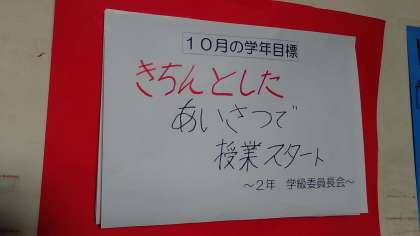 10月の学年目標
きちんとした
あいさつで
授業スタート
~2年 学級委員長会~